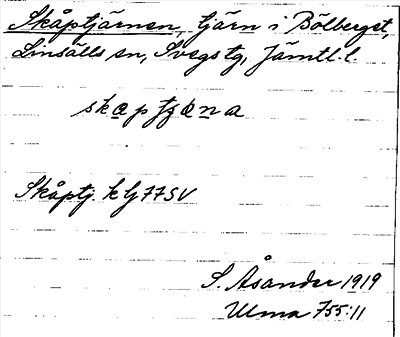 Skåptjärnen, tjärn i Bölberget,
Linsälls sn, Svegs tg, Jämtl. l.
Skåptj. k bj 77 SV
S. Åsander 1919
Ulma 755:11